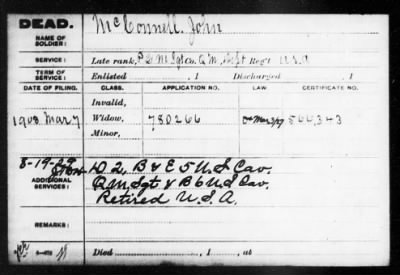 DEAD.
McConnell, John
NAME OF SOLDIER:
SERVICE: Late rank, P Q M Sgt Co. Q.M. Dept Reg't U.S.A
TERM OF SERVICE: Enlisted , 1 Discharged , 1
DATE OF FILING. CLASS. APPLICATION NO. LAW. CERTIFICATE NO.
Invalid,
1908 Mar 7 Widow, 780266 566343
Minor,
8-19-29
ADDITIONAL SERVICES: D 2, B & E 5 U.S Cav.
Q.M Sgt & B 6 U.S Cav.
Retired U.S.A.
REMARKS:
Died , 1 , at